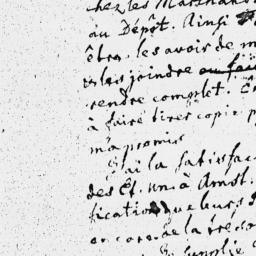 chez les Marchands
au Dépôt. Ainsi
être les avoir de m
les joindre ou fai
rendre complet.
à faire tirer copie
m'a promis
J'ai la satisfac
des Ét. Un. à Amst.
fication que leurs
encore de la reco
Je supplie